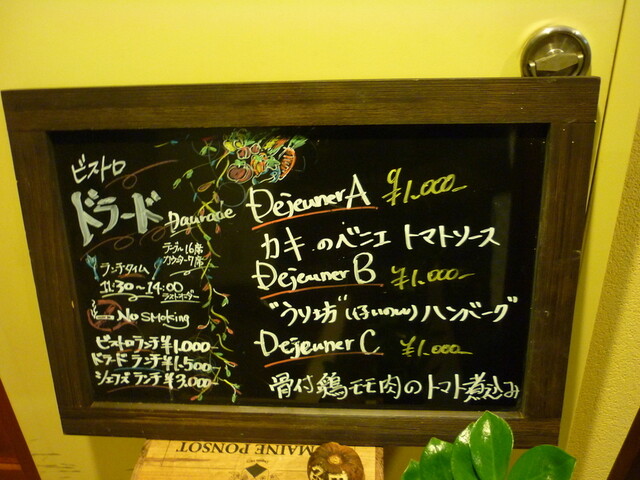 ビストロ
ドラード Daurade
テーブル16席
カウンター7席
ランチタイム
11:30〜14:00
ラストオーダー
No Smoking
ビストロランチ¥1.000
ドラードランチ¥1.500
シェフズランチ¥3.000
Dejeuner A ¥1.000-
カキのベニエ トマトソース
Dejeuner B ¥1.000-
"うり坊" ハンバーグ
Dejeuner C ¥1.000-
骨付鶏モモ肉のトマト煮込み
MAINE PONSOT